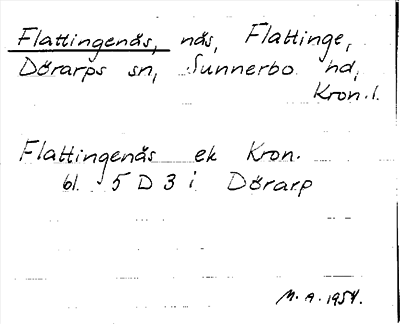 Flattingenäs, näs, Flattinge,
Dörarps sn, Sunnerbo hd,
Kron. l.
Flattingenäs ek Kron.
bl. 5 D 3 i Dörarp
M. A. 1954.